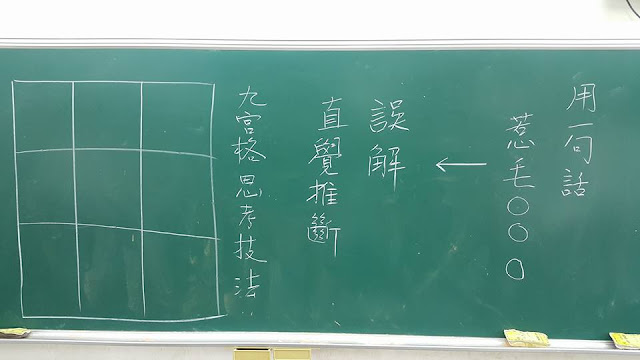 用一句話
惹毛○○○
←
誤解
直覺推斷
九宮格思考技法